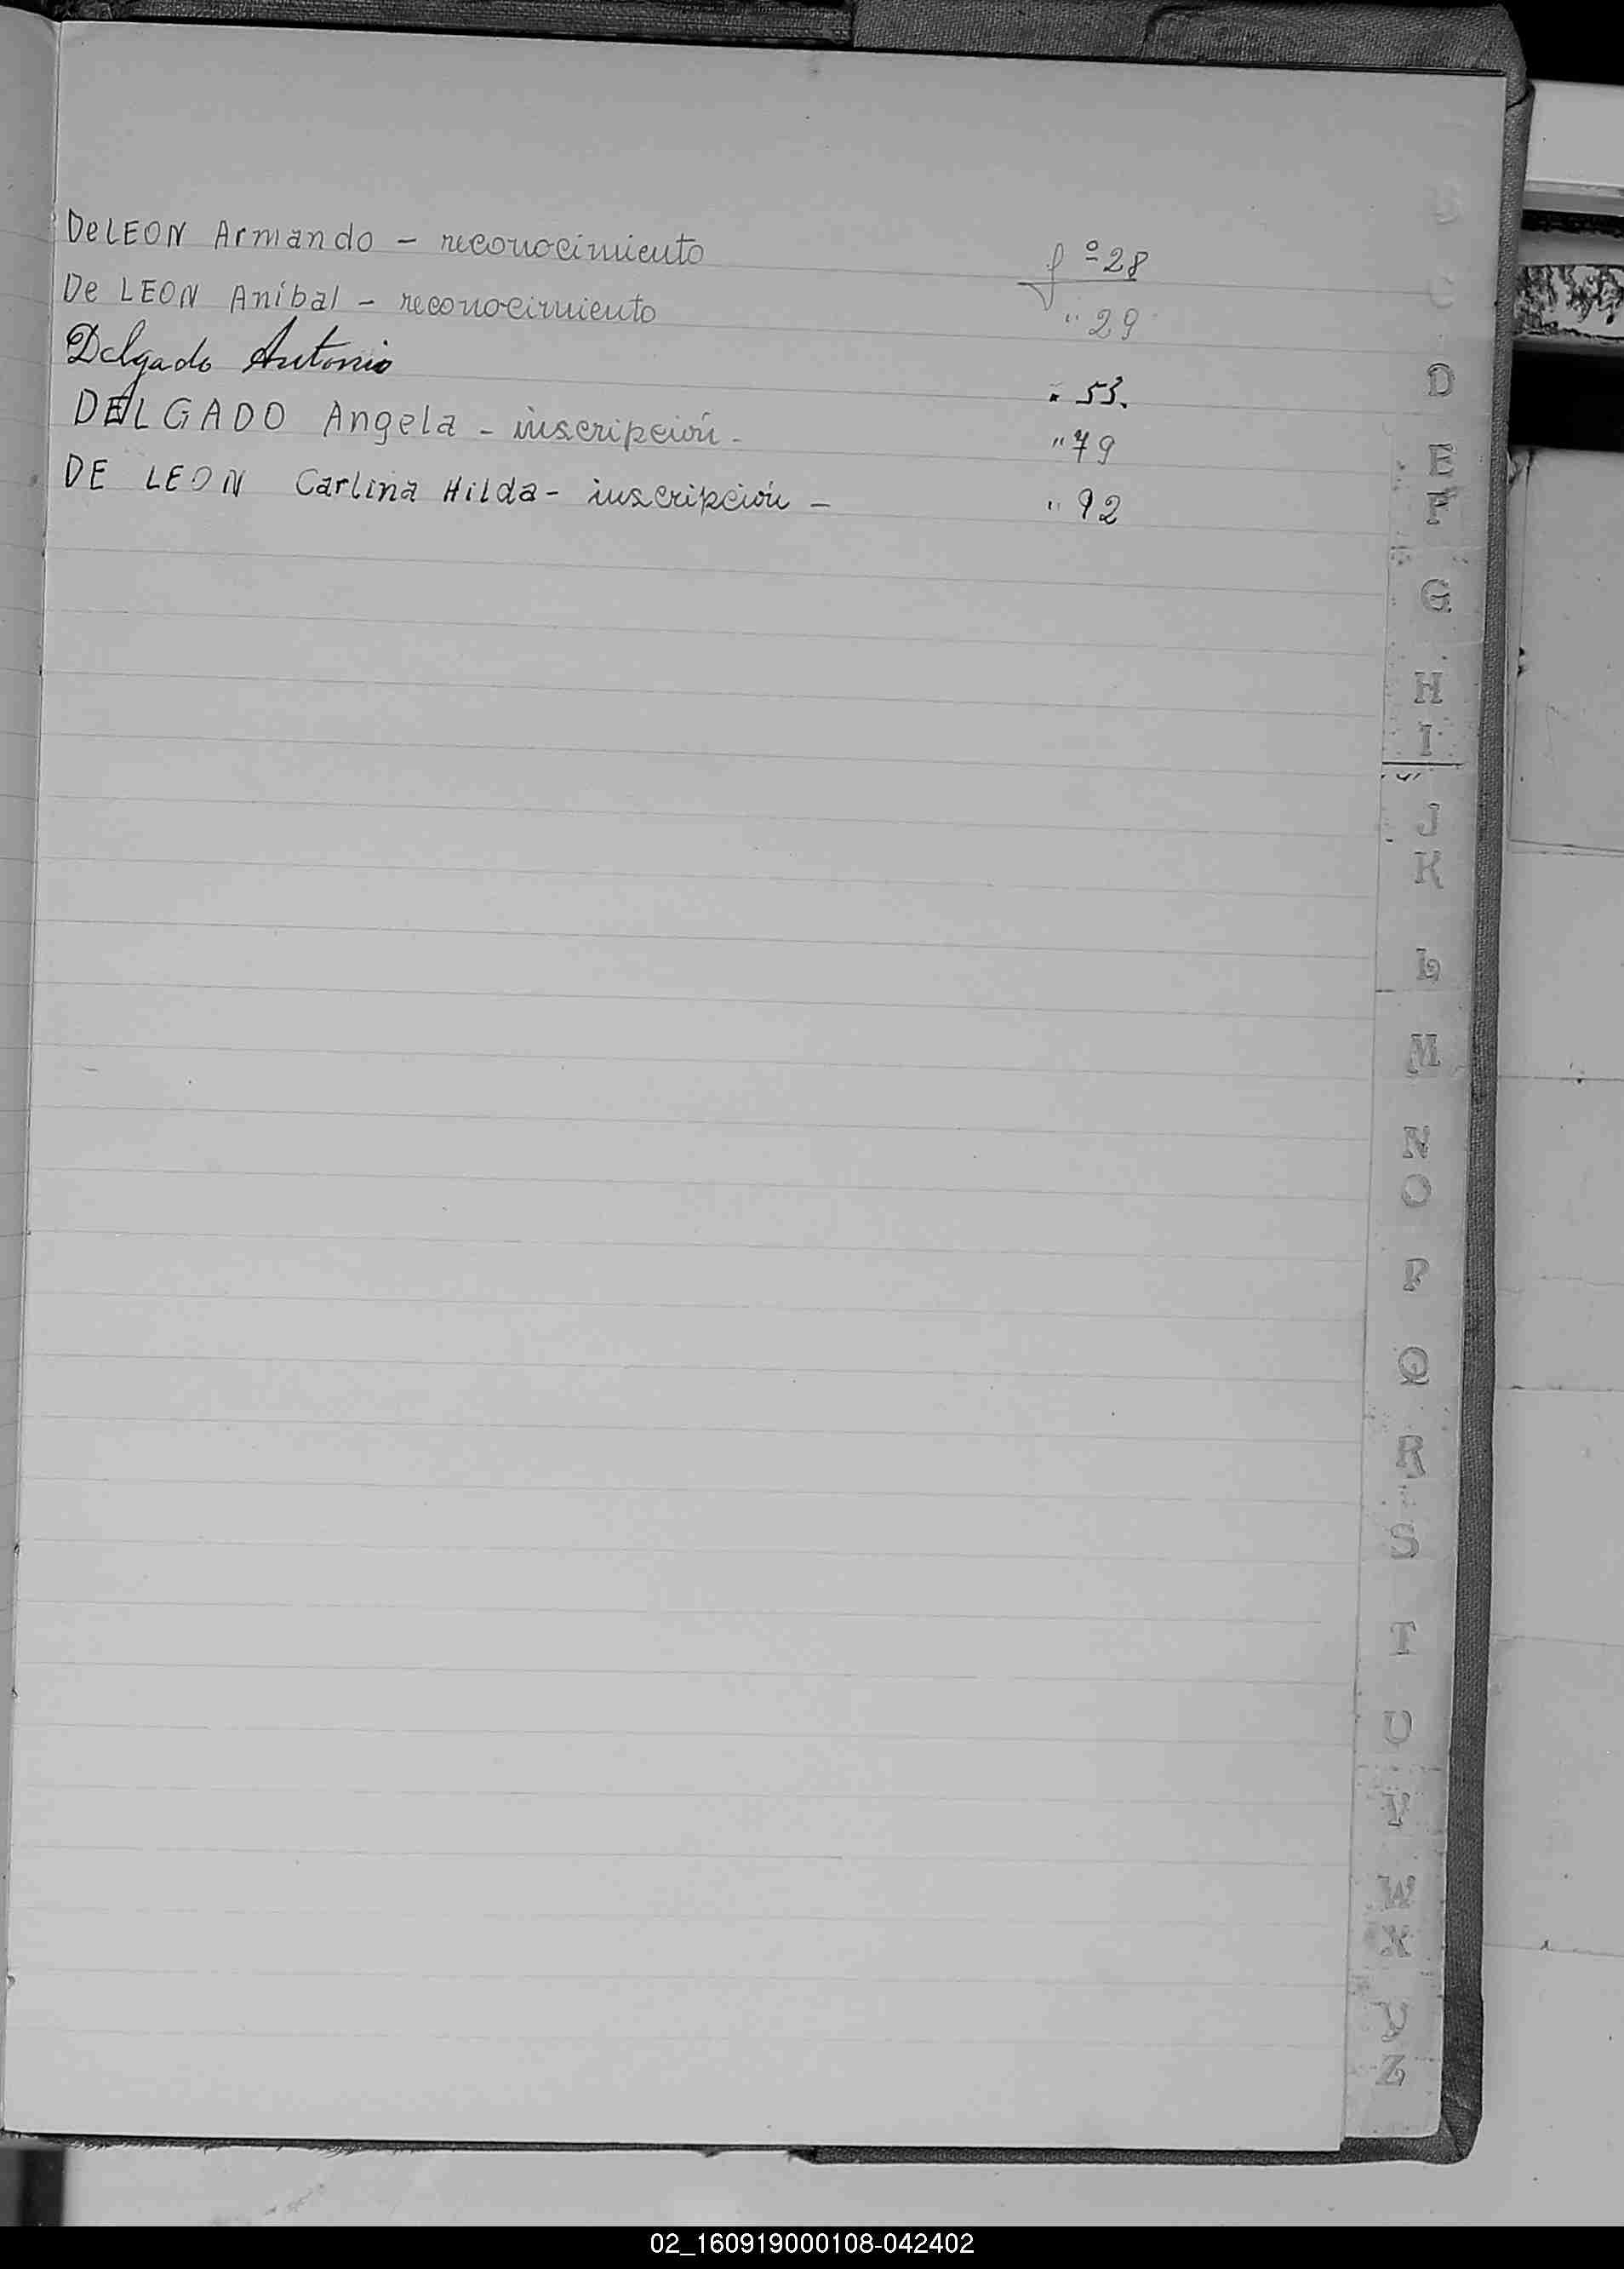 DeLEON Armando - reconocimiento fº 28
De LEON Aníbal - reconocimiento " 29
Delgado Antonio " 53.
DELGADO Angela - inscripción - " 79
DE LEON Carlina Hilda - inscripción - " 92
D
E
F
G
H
I
J
K
L
M
N
O
P
Q
R
S
T
U
V
W
X
Z
02_160919000108-042402